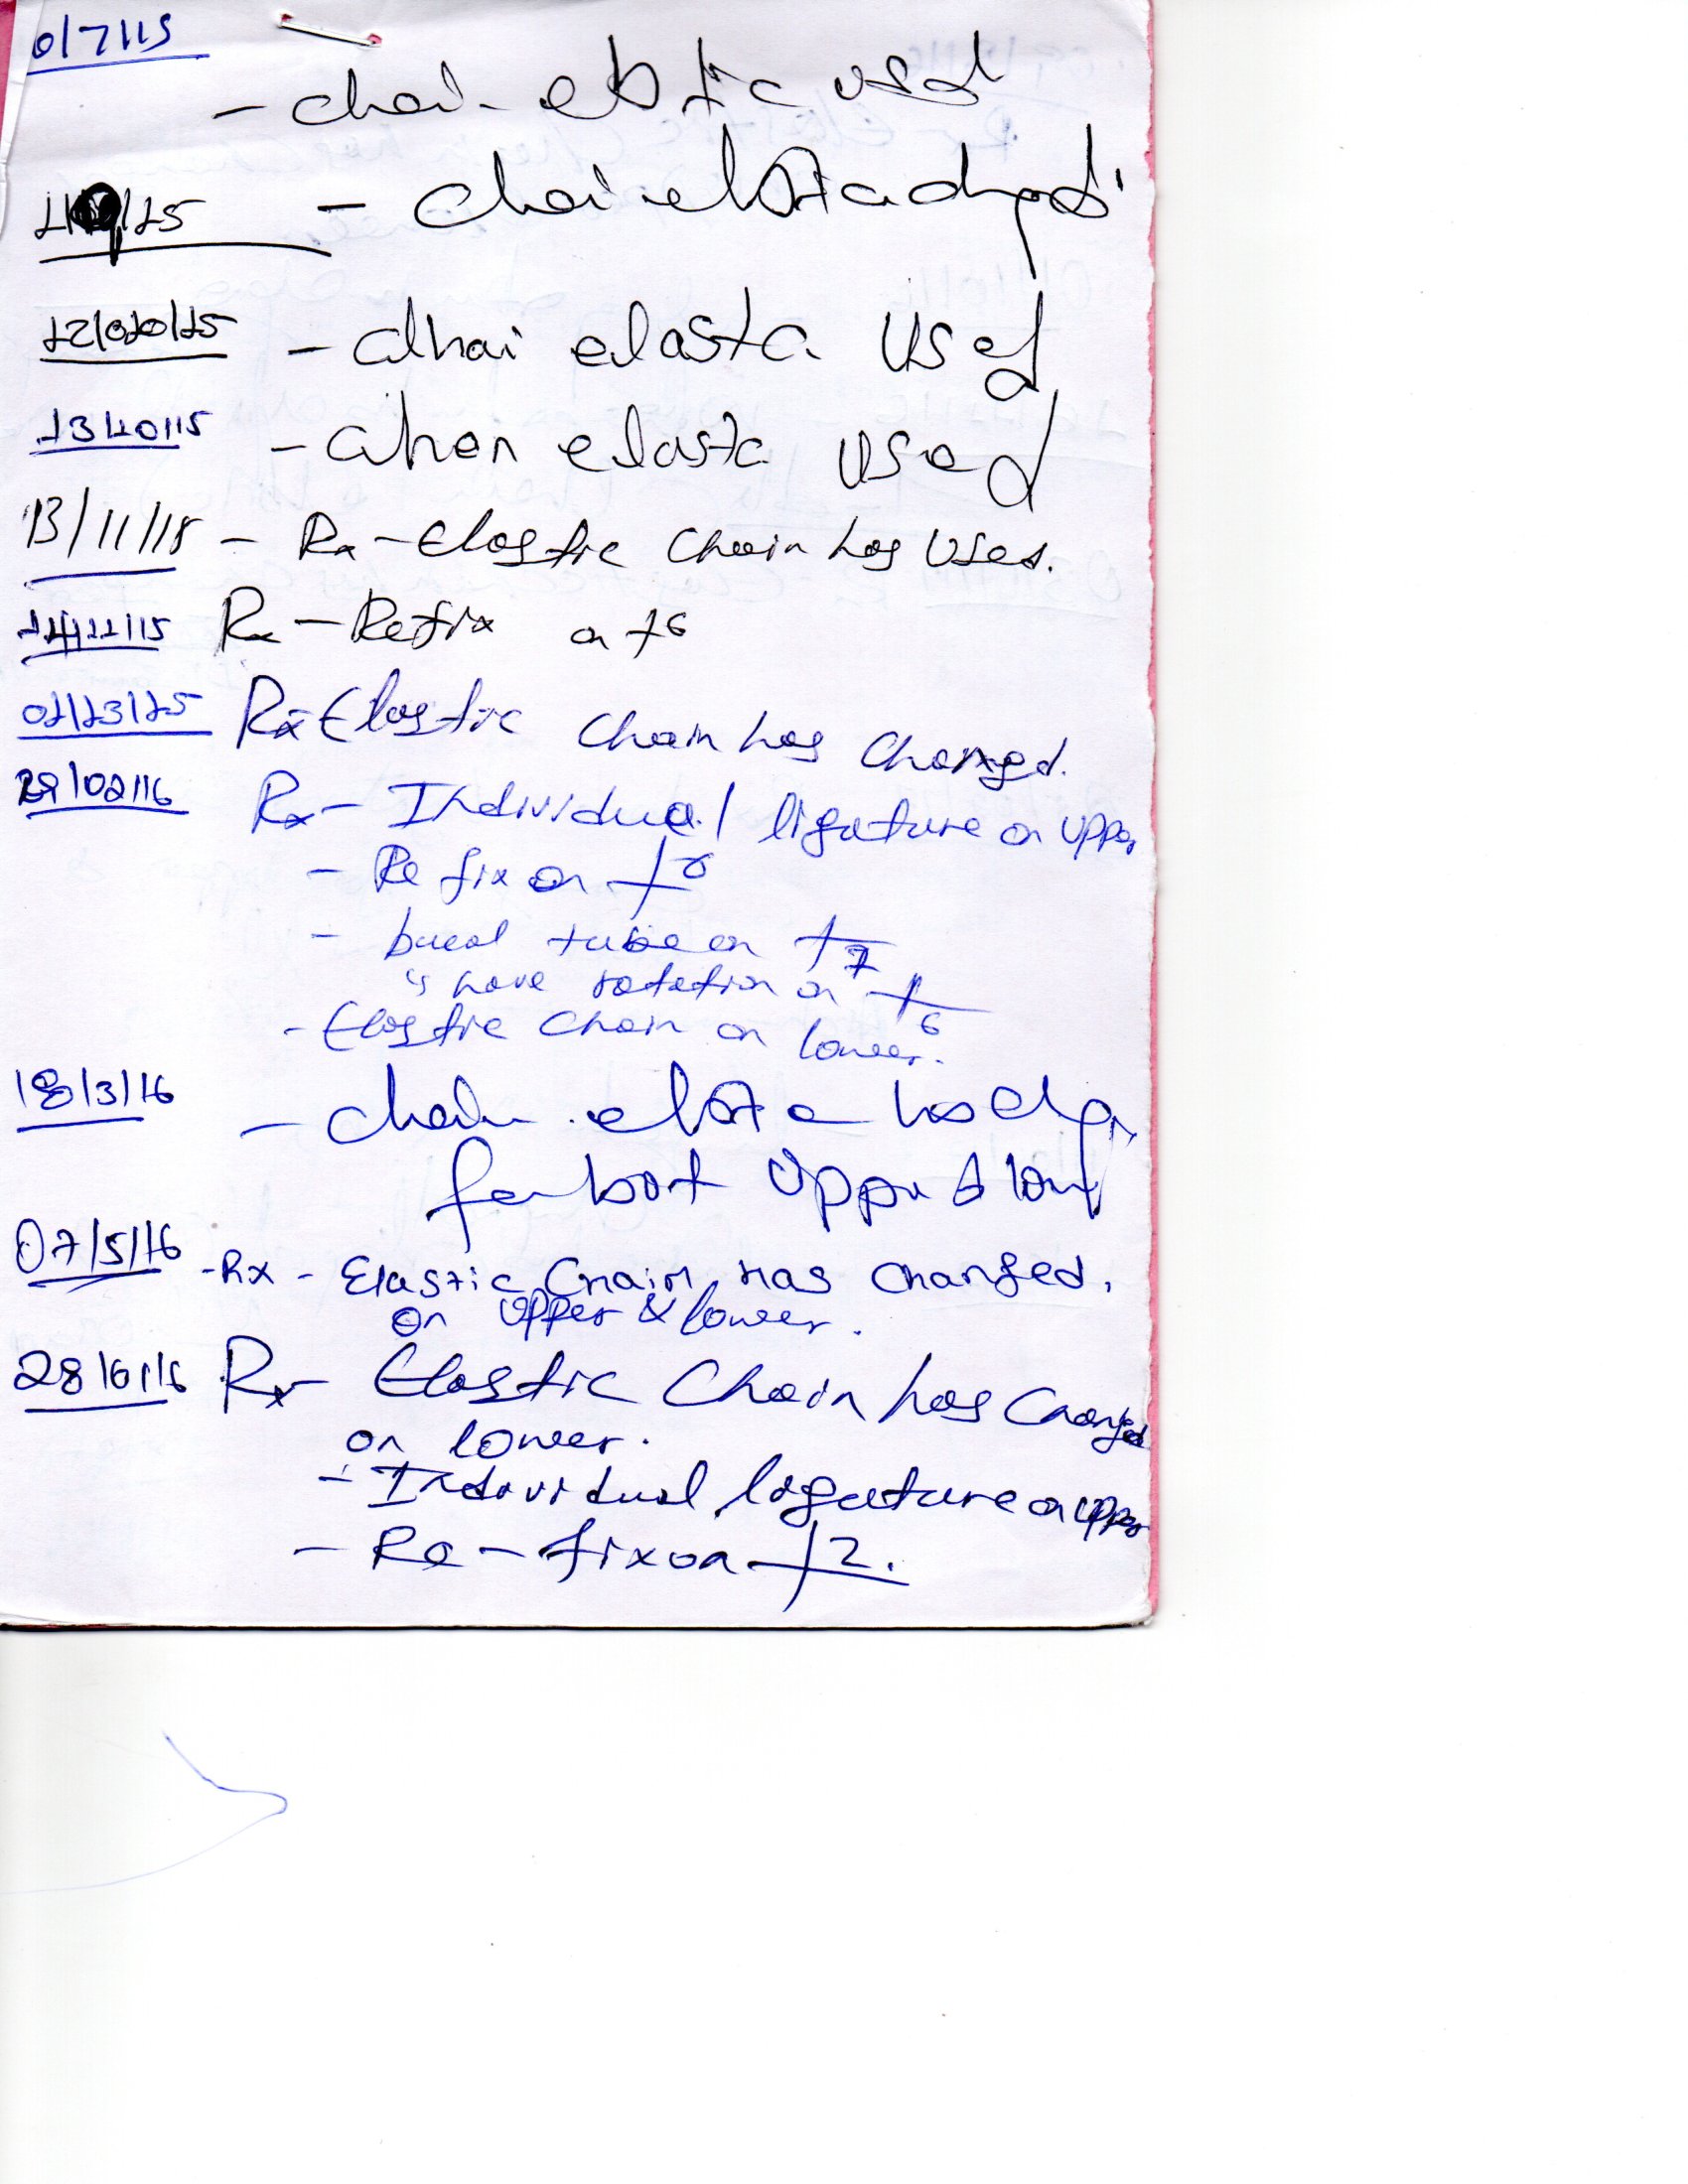 0/7/15
- chai- elstic used
- chai elstic changed
12/010/15 - chai elastc used
13/10/15 - chen elastc used
13/11/15 - Rx - Elastic Chain has Used.
14/11/15 Rx - Refix on +6
Rx Elastic Chain has Changed.
29/02/16 Rx - Individual ligature on upper
- Refix on +6
- bucal tube on +7
is have rotation on +6
- Elastic Chain on lower.
18/3/16 - chain elste has
for bot uppr & low
07/5/16 - Rx - Elastic Chain has changed.
on upper & lower.
28/6/16 Rx - Elastic Chain has Changed
on lower.
- Individual ligature on upper
- Re-fix on +2.